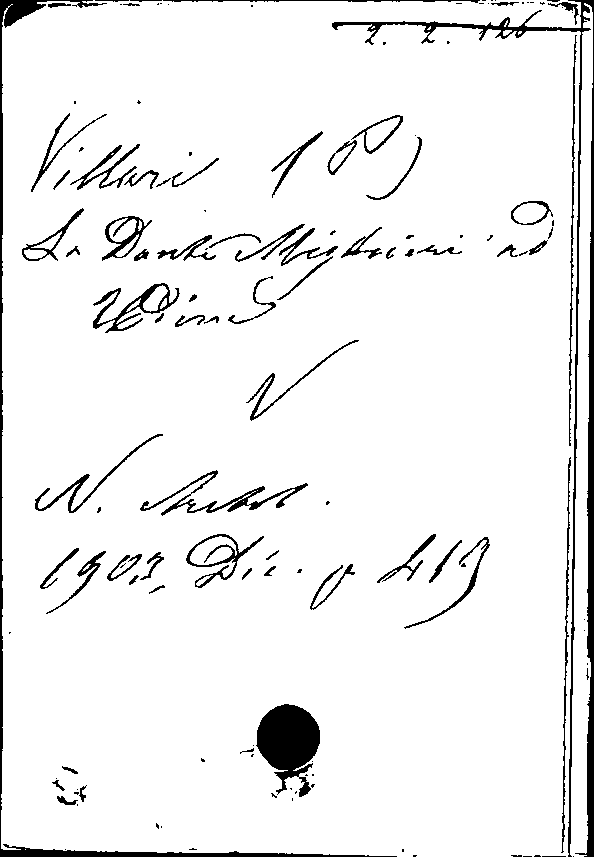 2. 2. 126
Villari (P)
La Dante Alighieri ad
Udine
V
N. Antol.
1903, Dic. p 413